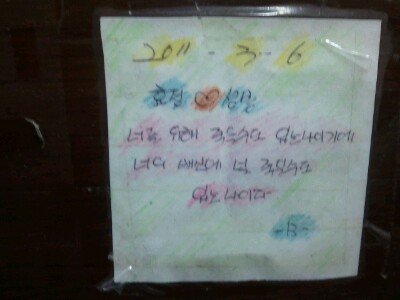 2011 - 3 - 6
효정 ♡ 성민
너를 위해 죽을수도 있는나이기에
너의 배신에 널 죽일수도
있는나이다